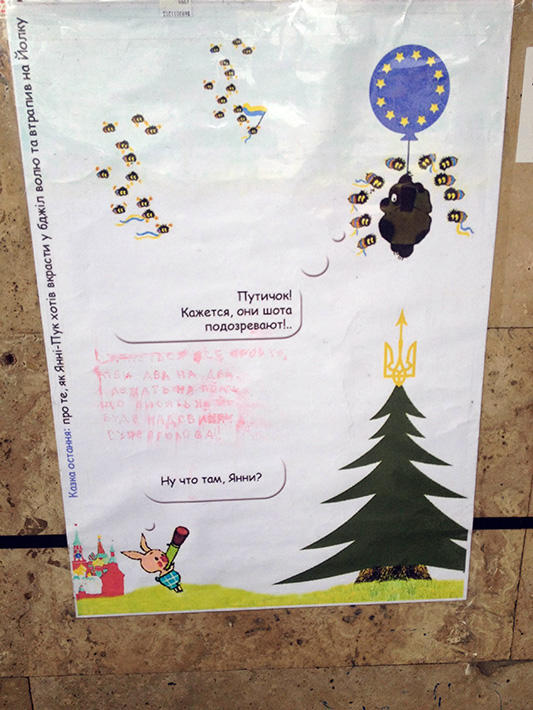 Казка остання: про те, як Янні-Пук хотів вкрасти у бджіл волю та втрапив на Йолку
Путичок!
Кажется, они шота
подозревают!..
ВСЕ
ДВА НА ДВА,
БУДЕ
СУПЕРГОЛОВА!
Ну что там, Янни?